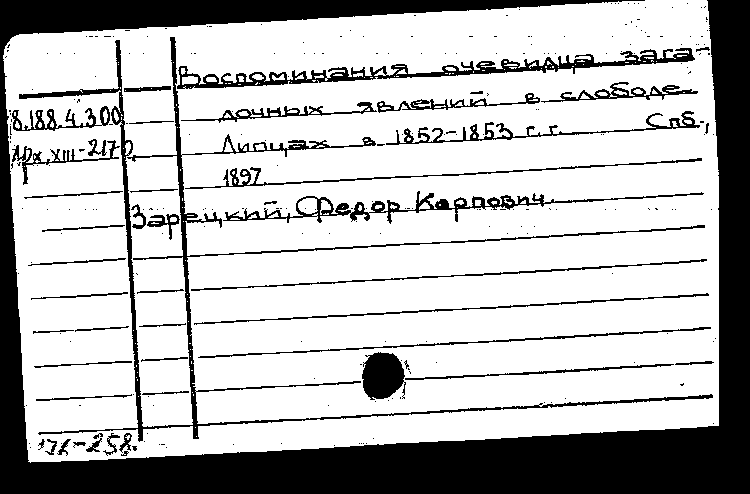 Воспоминания очевидца зага-
8.188.4.300 дочных явлений в слободе
Арх. XIII-2170. Липцах в 1852-1853 г.г. Спб.,
1897.
Зарецкий, Федор Карпович.
-258.